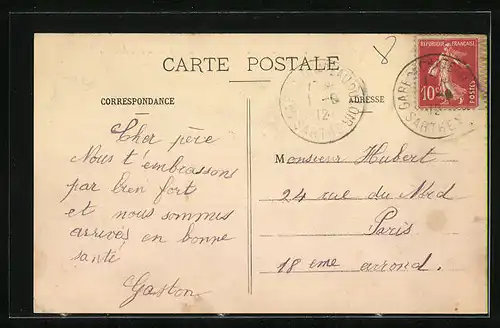 8
CARTE POSTALE
RÉPUBLIQUE FRANÇAISE
10c
POSTES
CORRESPONDANCE
ADRESSE
SARTHE
1-6
12
Cher père
Nous t'embrassons
par bien fort
et nous sommes
arrivés en bonne
santé
Gaston
Monsieur Hubert
24 rue du Nord
Paris
18 eme arrond.